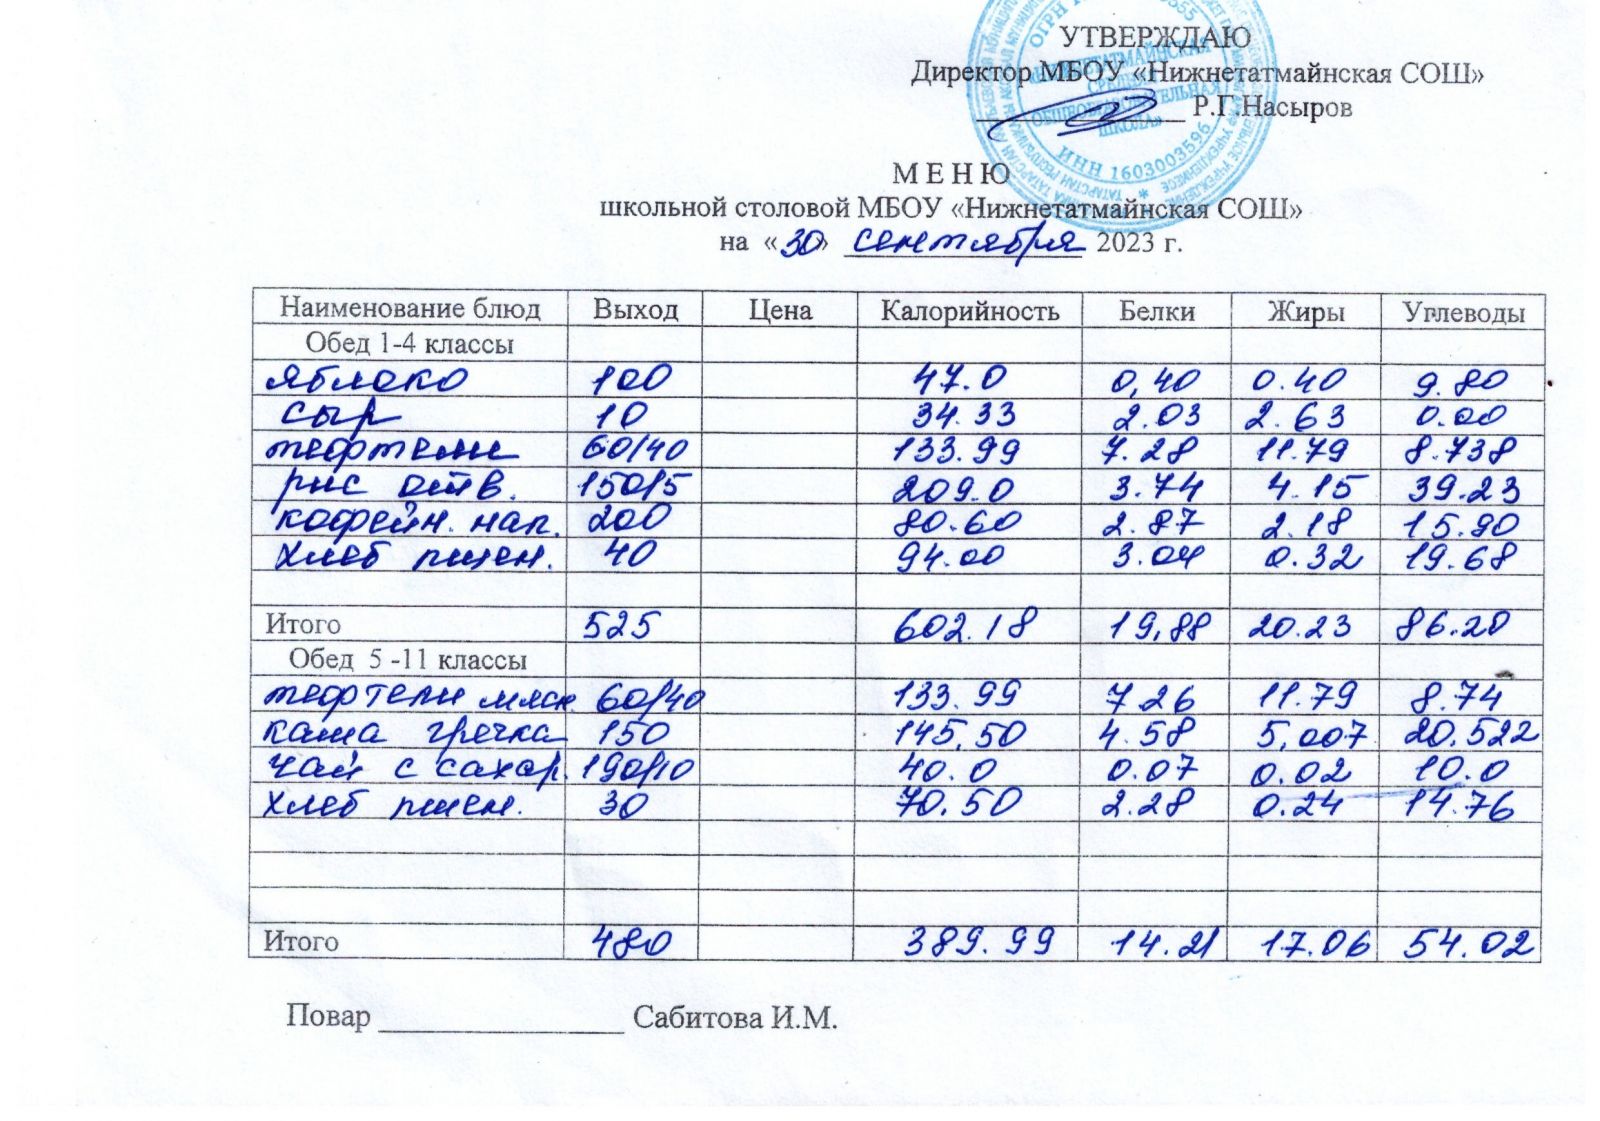 УТВЕРЖДАЮ
Директор МБОУ «Нижнетатмайнская СОШ»
Р.Г.Насыров
ОБЩЕОБРАЗОВАТЕЛЬНАЯ
ШКОЛА»
ИНН 1603003596
М Е Н Ю
школьной столовой МБОУ «Нижнетатмайнская СОШ»
на «30» сентября 2023 г.
Наименование блюд Выход Цена Калорийность Белки Жиры Углеводы
Обед 1-4 классы
яблоко 100 47.0 0,40 0.40 9.80
сыр 10 34.33 2.03 2.63 0.00
тефтели 60/40 133.99 7.28 11.79 8.738
рис отв. 150/5 209.0 3.74 4.15 39.23
кофейн. нап. 200 80.60 2.87 2.18 15.90
хлеб пшен. 40 94.00 3.04 0.32 19.68
Итого 525 602.18 19,88 20.23 86.20
Обед 5 -11 классы
тефтели мясн 60/40 133.99 7.26 11.79 8.74
каша гречка 150 145,50 4.58 5,007 20.522
чай с сахар. 190/10 40.0 0.07 0.02 10.0
хлеб пшен. 30 70.50 2.28 0.24 14.76
Итого 480 389.99 14.21 17.06 54.02
Повар Сабитова И.М.